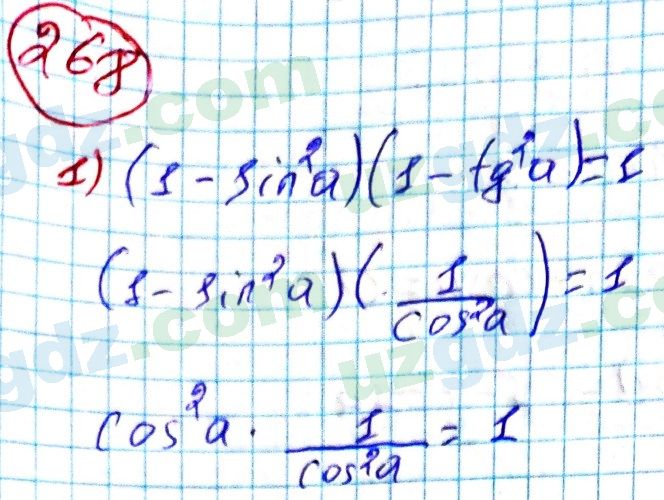 268
1) (1 - sin²a)(1 - tg²a) = 1
(1 - sin²a)(1/cos²a) = 1
cos²a · 1/cos²a = 1
uzgdz.com